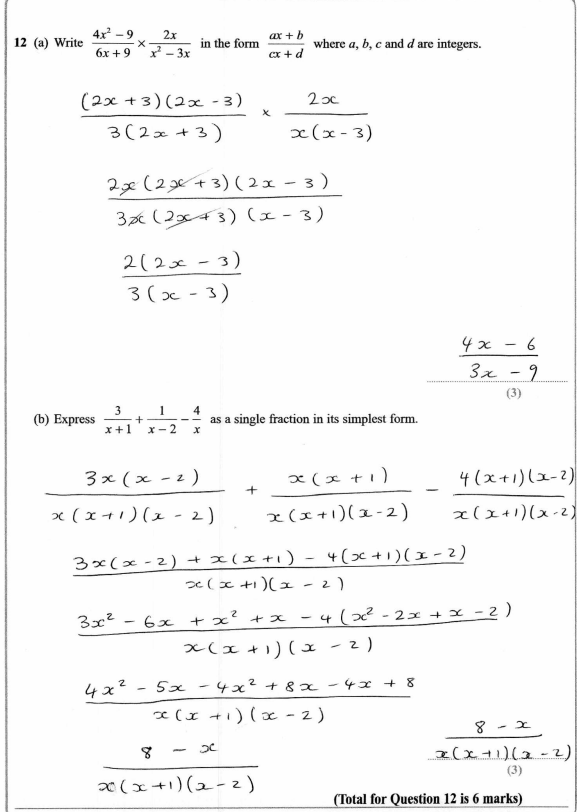 12 (a) Write (4x² − 9)/(6x + 9) × 2x/(x² − 3x) in the form (ax + b)/(cx + d) where a, b, c and d are integers.
((2x + 3)(2x − 3))/(3(2x + 3)) × 2x/(x(x − 3))
(2x(2x + 3)(2x − 3))/(3x(2x + 3)(x − 3))
(2(2x − 3))/(3(x − 3))
(4x − 6)/(3x − 9)
(3)
(b) Express 3/(x + 1) + 1/(x − 2) − 4/x as a single fraction in its simplest form.
(3x(x − 2))/(x(x + 1)(x − 2)) + (x(x + 1))/(x(x + 1)(x − 2)) − (4(x + 1)(x − 2))/(x(x + 1)(x − 2))
(3x(x − 2) + x(x + 1) − 4(x + 1)(x − 2))/(x(x + 1)(x − 2))
(3x² − 6x + x² + x − 4(x² − 2x + x − 2))/(x(x + 1)(x − 2))
(4x² − 5x − 4x² + 8x − 4x + 8)/(x(x + 1)(x − 2))
(8 − x)/(x(x + 1)(x − 2))
(8 − x)/(x(x + 1)(x − 2))
(3)
(Total for Question 12 is 6 marks)